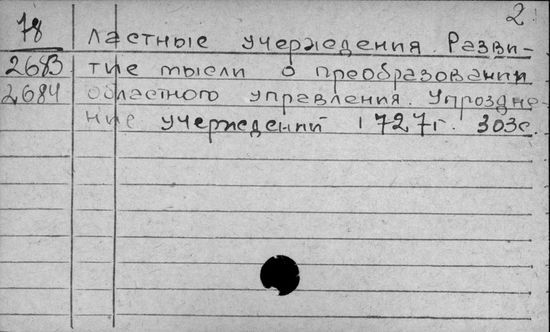 2
78 ластные учереждения. Разви-
2683 тие мысли о преобразовании
2684 областного управления. Упраздне-
ние учереждений 1727г. 303с.